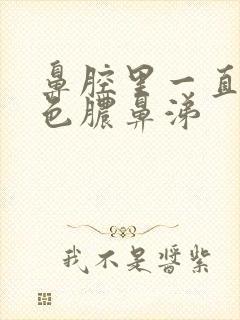 鼻腔里一直
色脓鼻涕
我不是酱紫